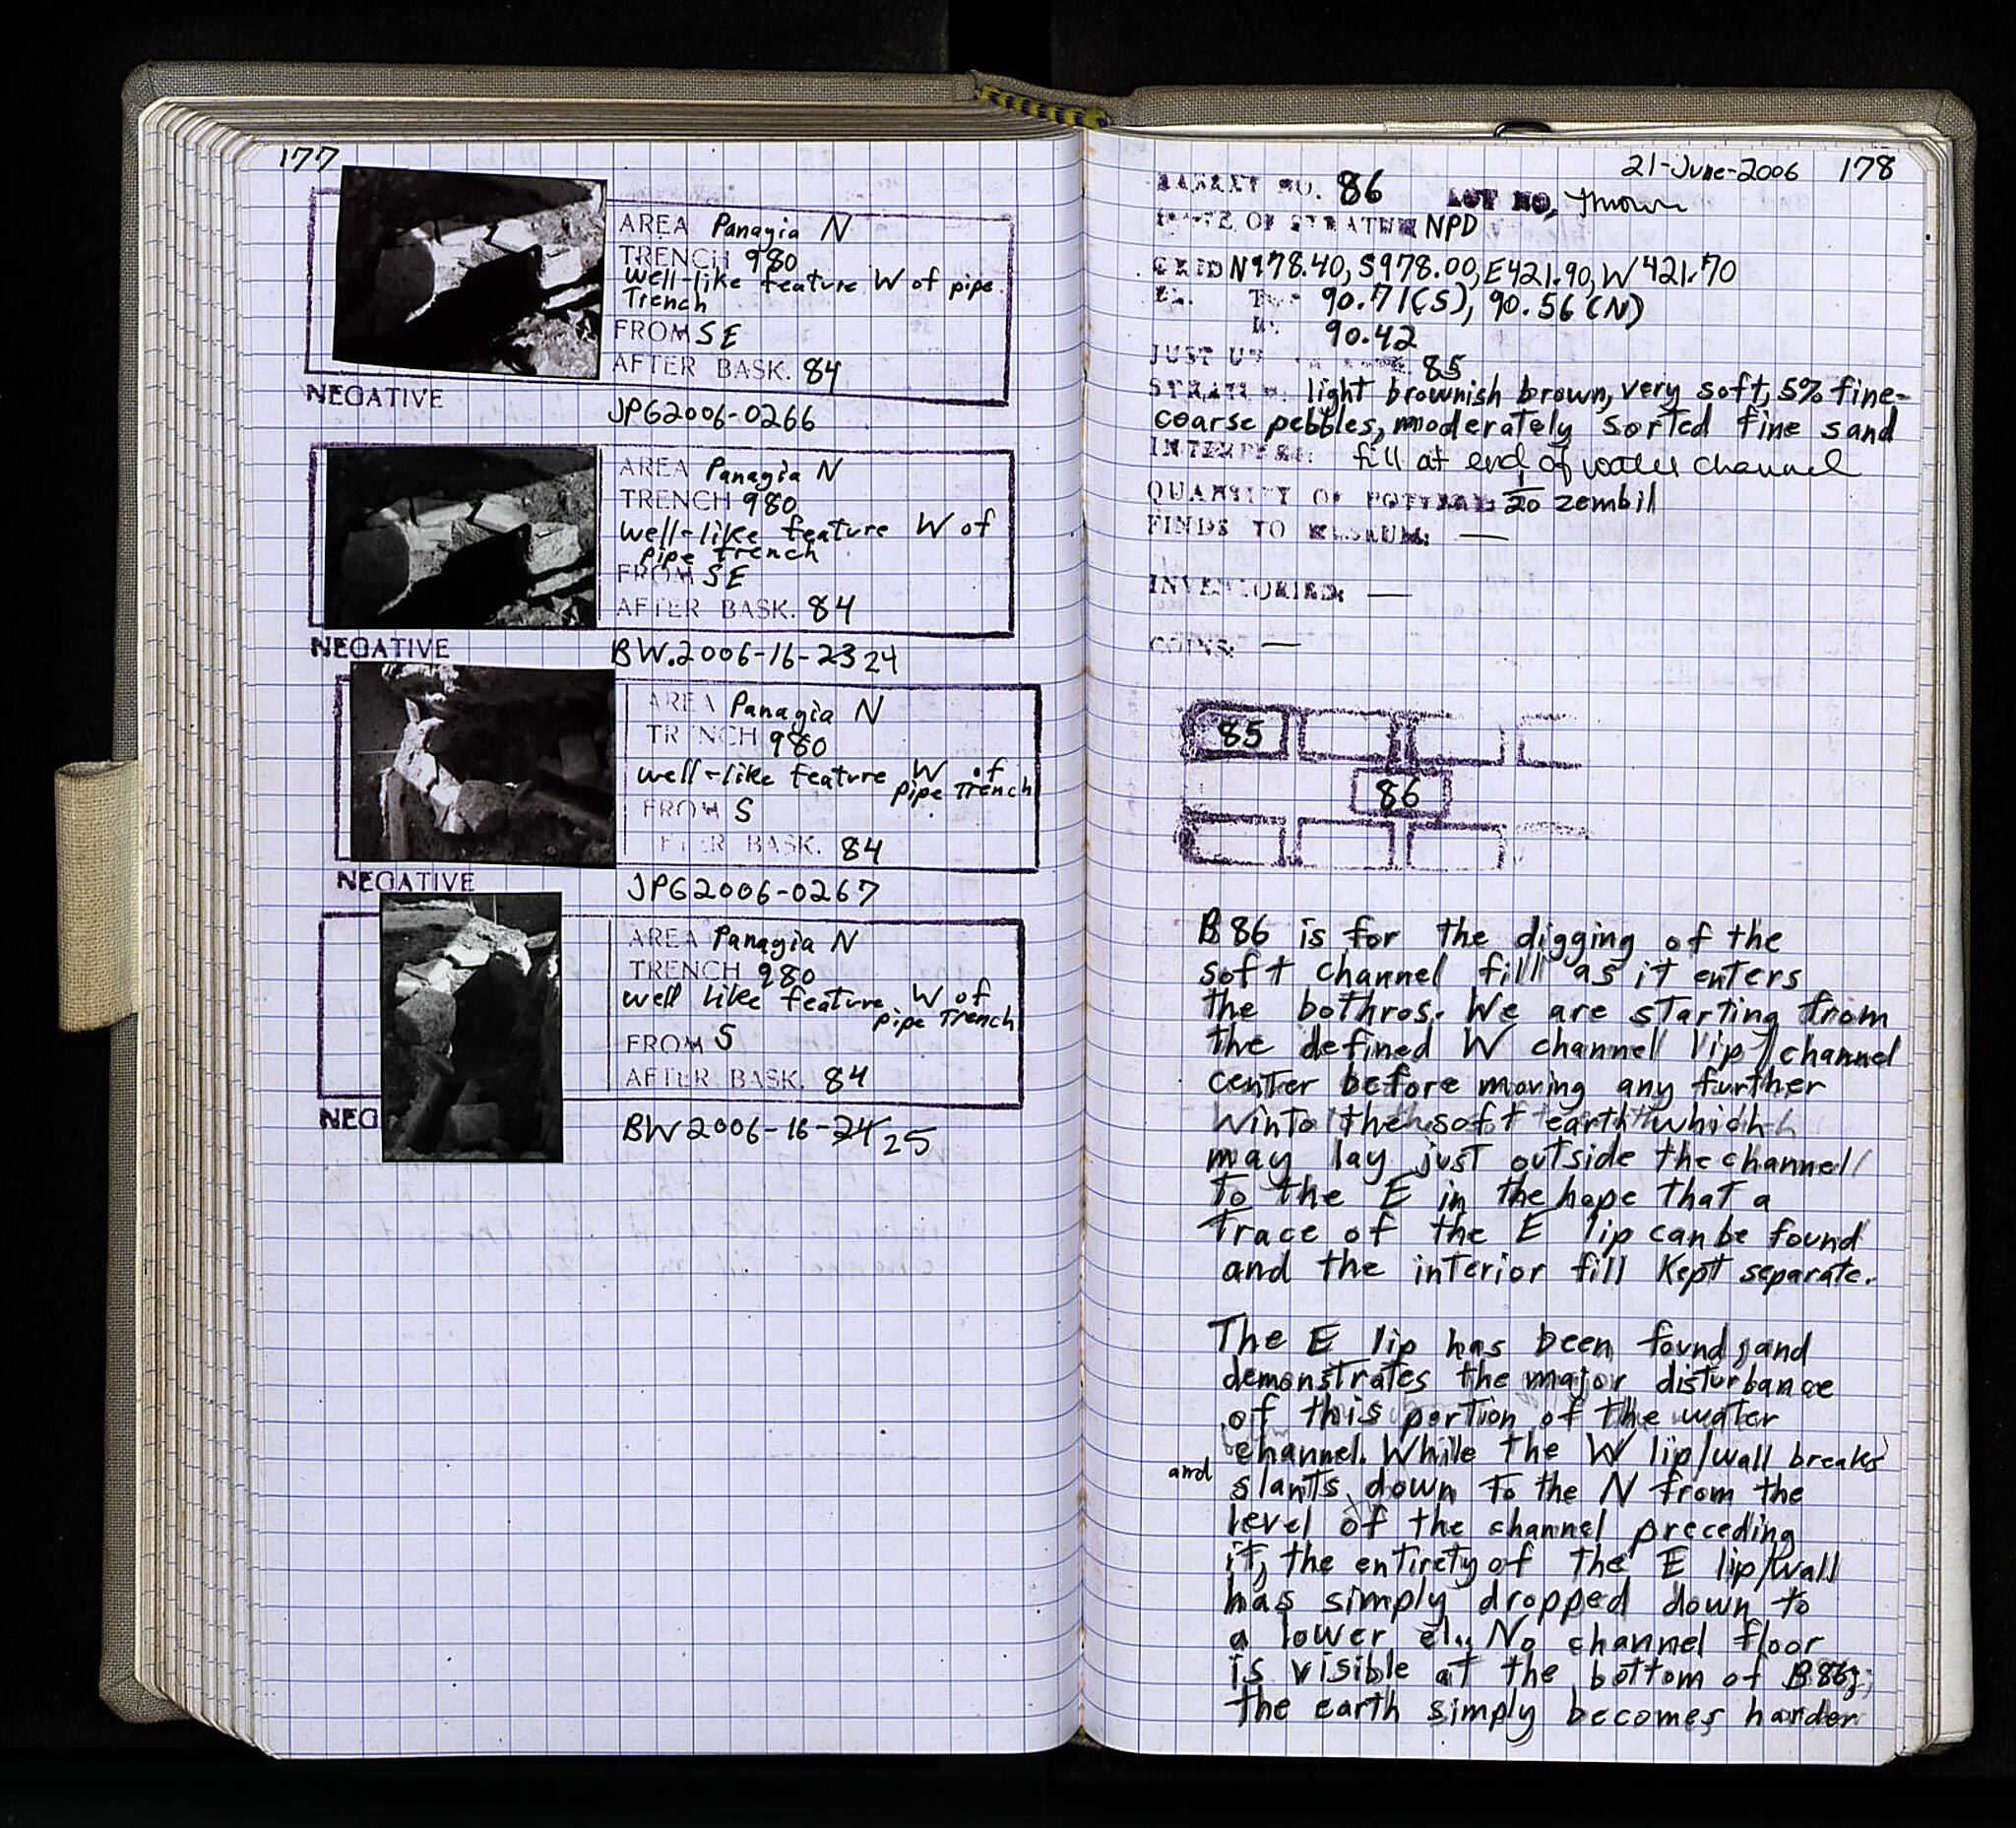 177
AREA Panagia N
TRENCH 980
well-like feature W of pipe
Trench
FROM SE
AFTER BASK. 84
NEGATIVE
JPG2006-0266
AREA Panagia N
TRENCH 980
well-like feature W of
pipe trench
FROM SE
AFTER BASK. 84
NEGATIVE
BW.2006-16-23 24
AREA Panagia N
TRENCH 980
well-like feature W of
pipe Trench
FROM S
AFTER BASK. 84
NEGATIVE
JPG2006-0267
AREA Panagia N
TRENCH 980
well like feature W of
pipe Trench
FROM S
AFTER BASK. 84
NEG
BW2006-16-24 25
21-June-2006 178
BASKET NO. 86 LOT NO, Thrown
NPD
GRID N978.40, S978.00, E421.90, W421.70
EL. Top 90.71(S), 90.56(N)
90.42
JUST UNDER BASK. 85
STRATUM: light brownish brown, very soft, 5% fine-
coarse pebbles, moderately sorted fine sand
INTERPRE: fill at end of water channel
QUANTITY OF POTTERY: 1/20 zembil
FINDS TO MUSEUM: —
INVENTORIED: —
COINS: —
85
86
B86 is for the digging of the
soft channel fill as it enters
the bothros. We are starting from
the defined W channel lip/channel
center before moving any further
into the soft earth which
may lay just outside the channel
to the E in the hope that a
trace of the E lip can be found
and the interior fill kept separate.
The E lip has been found, and
demonstrates the major disturbance
of this portion of the water
channel. While the W lip/wall breaks
and slants down to the N from the
level of the channel preceding
it, the entirety of the E lip/wall
has simply dropped down to
a lower el.. No channel floor
is visible at the bottom of B86;
the earth simply becomes harder